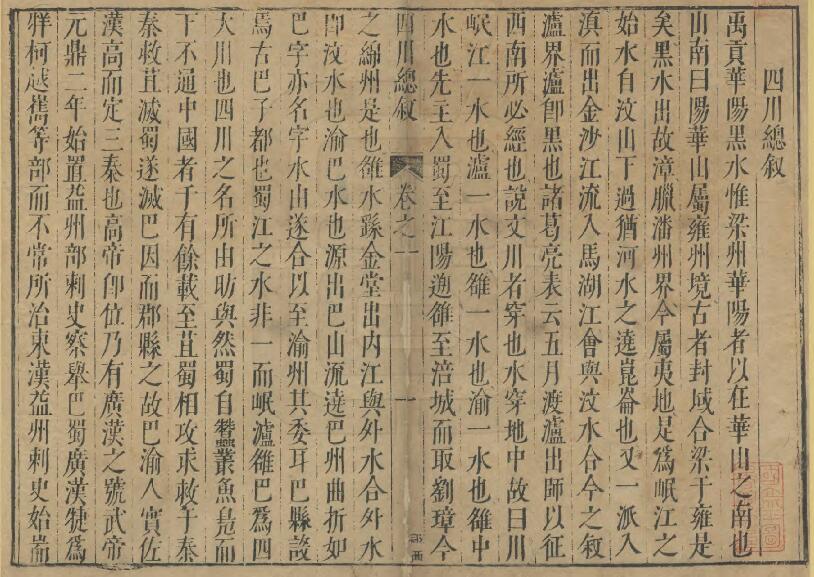 四川總叙
禹貢華陽黑水惟梁州華陽者以在華山之南也
山南曰陽華山屬雍州境古者封域合梁于雍是
矣黑水出故漳臘潘州界今屬夷地足爲岷江之
始水自汶山下過猶河水之遶崑崙也又一派入
滇而出金沙江流入馬湖江會與汶水合今之敍
瀘界瀘卽黑也諸葛亮表云五月渡瀘出師以征
西南所必經也說文川者穿也水穿地中故曰川
岷江一水也瀘一水也雒一水也渝一水也雒中
水也先主入蜀至江陽遡雒至涪城而取劉璋今
四川總叙 卷之一 一
之綿州是也雒水繇金堂出內江與外水合外水
卽汶水也渝巴水也源出巴山流遶巴州曲折如
巴字亦名字水山遂合以至渝州其委耳巴縣設
焉古巴子都也蜀江之水非一而岷瀘雒巴爲四
大川也四川之名所由昉與然蜀自蠶叢魚鳧而
下不通中國者千有餘載至苴蜀相攻求救于秦
秦救苴滅蜀遂滅巴因而郡縣之故巴渝人實佐
漢高而定三秦也高帝卽位乃有廣漢之號武帝
元鼎二年始置益州部刺史察舉巴蜀廣漢犍爲
牂柯越嶲等部而不常所治東漢益州刺史始崙